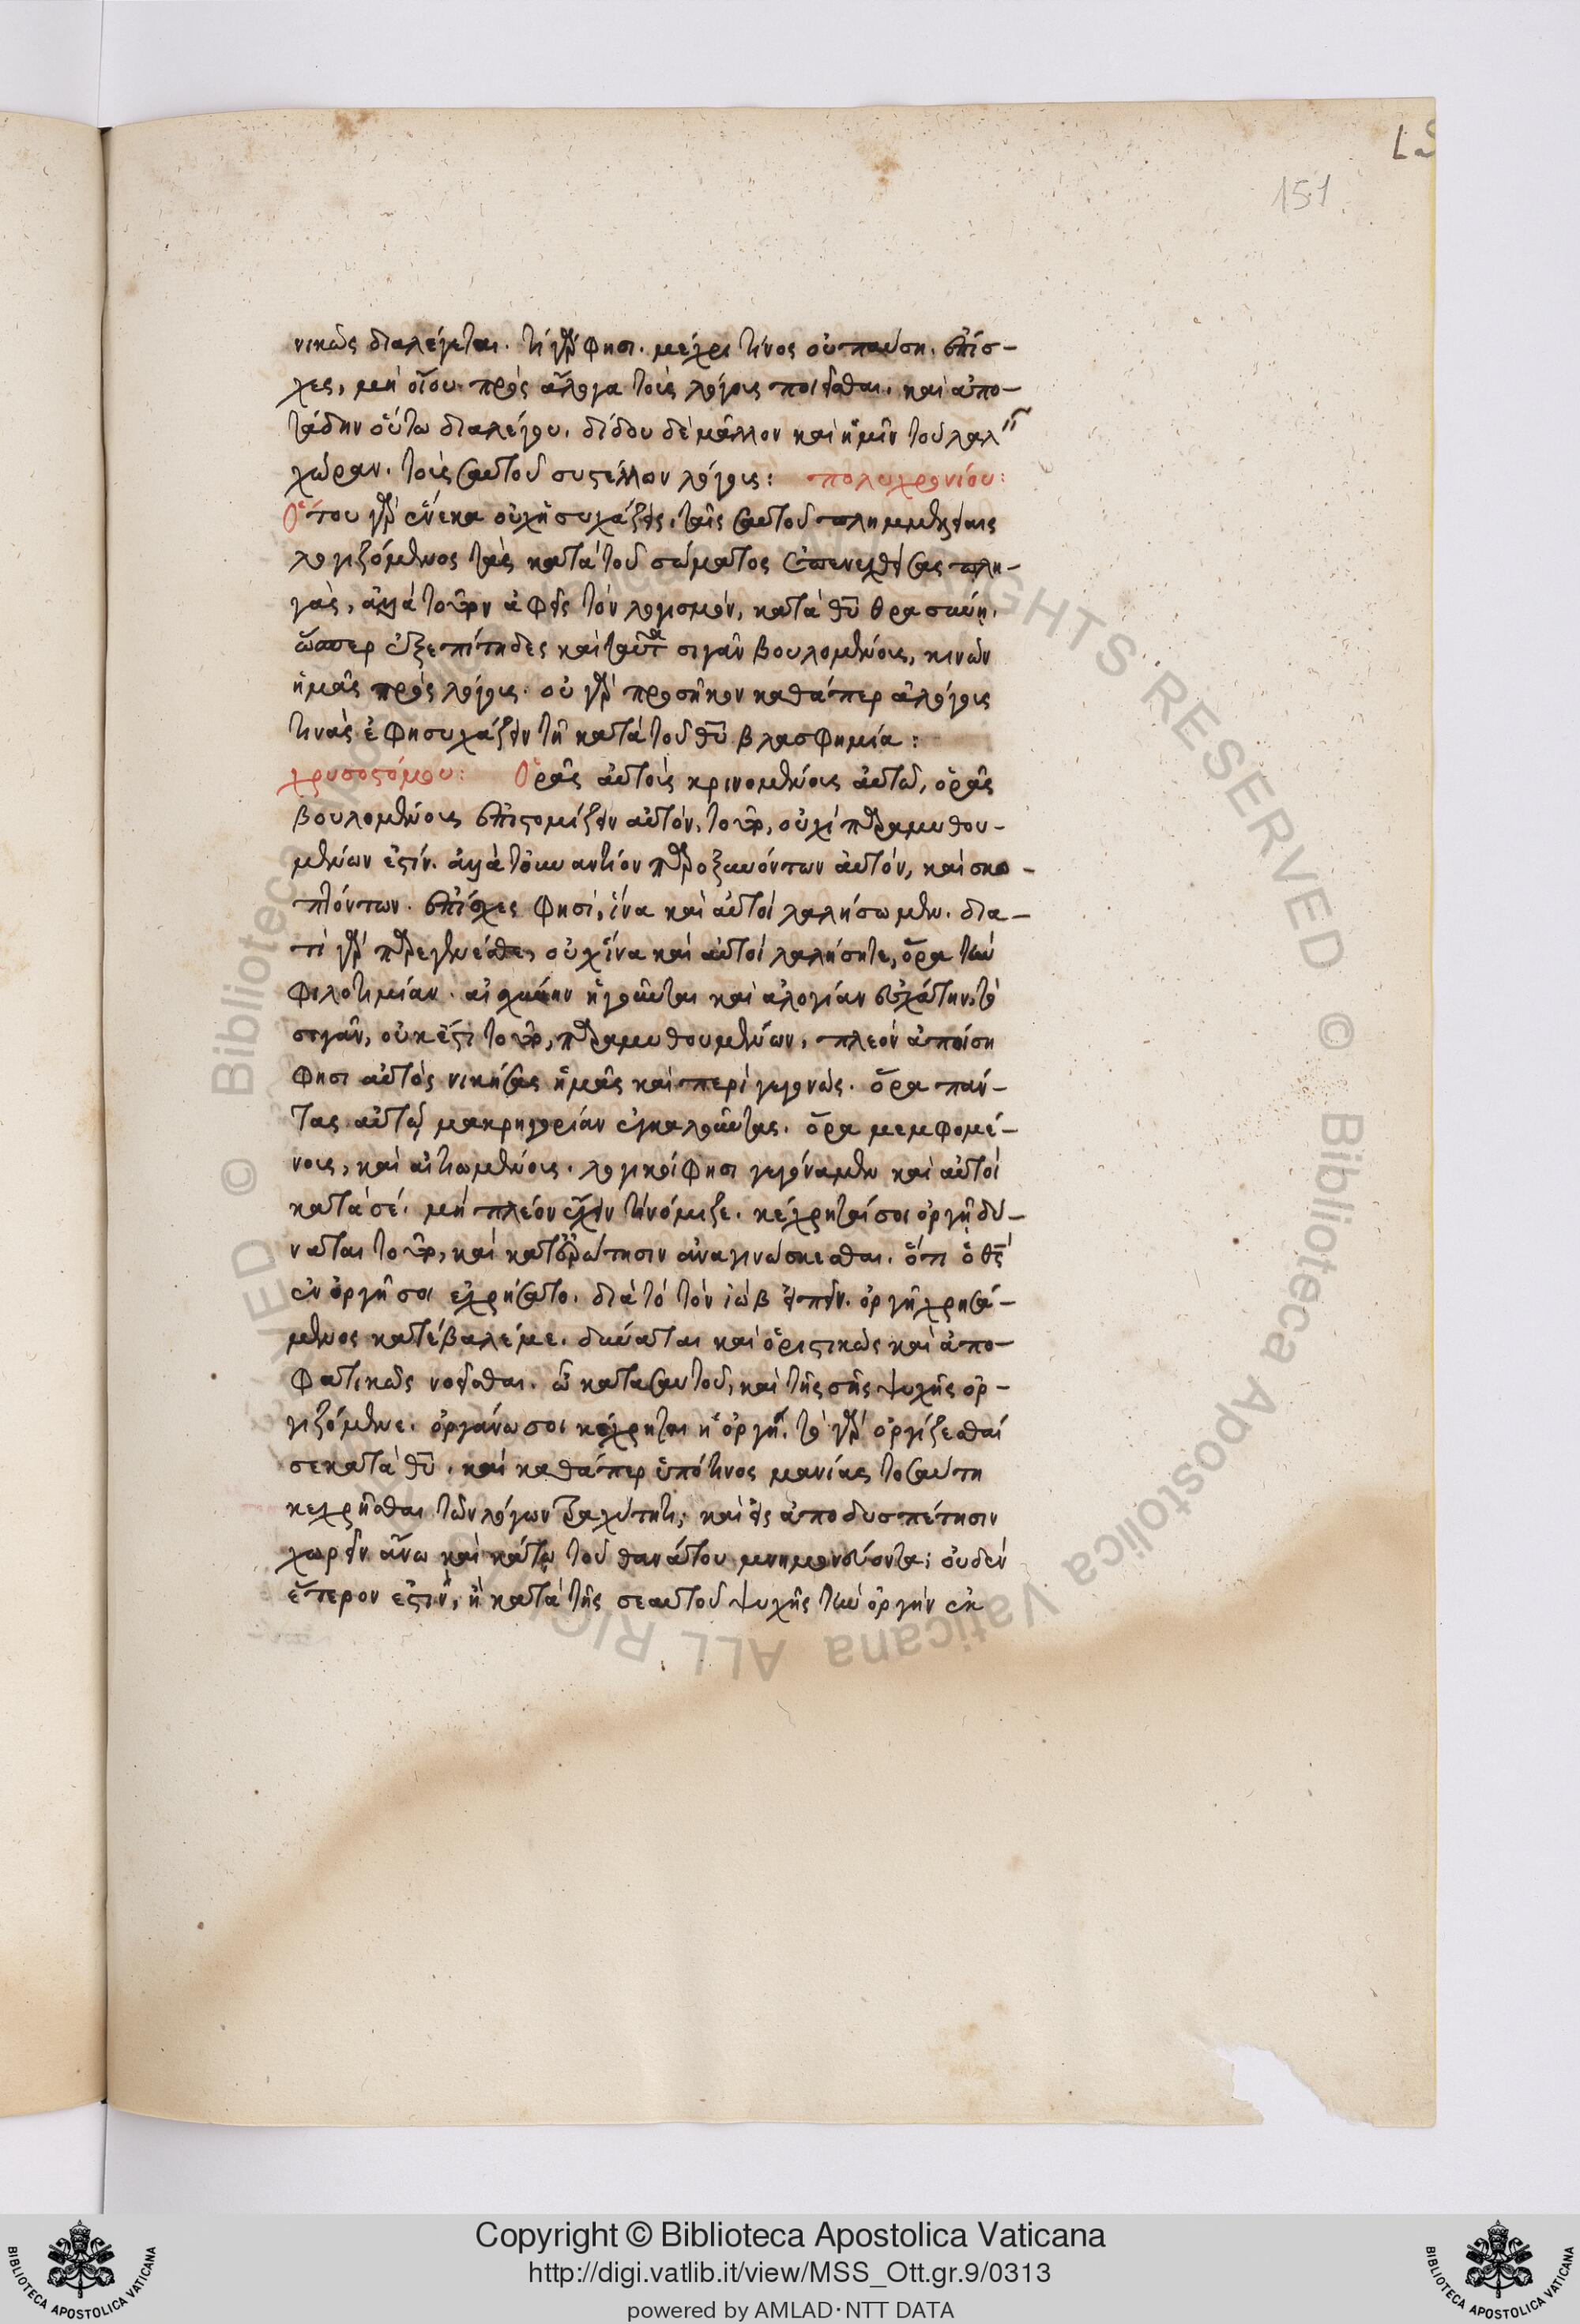 151
νικῶς διαλέγεται. τί γὰρ φησι. μέχρι τίνος οὐ παύση. ἐπίσ-
χες, μὴ οἴου πρὸς ἄλογα τοὺς λόγους ποιεῖσθαι. καὶ ἀπο-
τάδην οὕτω διαλέγου. δίδου δὲ μᾶλλον καὶ ἡμῖν τοῦ λαλ
χώραν. τοὺς σαυτοῦ συστέλλων λόγους: πολυχρονίου:
Ὅτου γὰρ ἕνεκα οὐχ ἡσυχάζεις, ταῖς σαυτοῦ πλημμελείαις
λογιζόμενος τὰς κατὰ τοῦ σώματος ἐπενεχθείσας πλη-
γὰς, ἀλλὰ τοὐναντίον ἀφεὶς τὸν λογισμὸν, κατὰ θυ θρασύνη.
ὥσπερ ἐξεπίτηδες καὶ ταῦτα σιγᾶν βουλομένους, κινῶν
ἡμᾶς πρὸς λόγους. οὐ γὰρ προσῆκον καθάπερ ἀλόγους
τινὰς ἐφησυχάζειν τῇ κατὰ τοῦ θυ βλασφημία:
χρυσοστόμου: Ὁρᾶς αὐτοὺς κρινομένους αὐτῶ, ὁρᾶς
βουλομένους ἐπιστομίζειν αὐτόν. τοῦτο, οὐχὶ παραμυθου-
μένων ἐστίν. ἀλλὰ τοὐναντίον παροξυνόντων αὐτόν, καὶ σκο-
πτόντων. ἐπίσχες φησὶ, ἵνα καὶ αὐτοὶ λαλήσωμεν. δια-
τί γὰρ παρεγένεσθε, οὐχ ἵνα καὶ αὐτοὶ λαλήσητε, ὅρα τὴν
φιλοτιμίαν. αἰσχύνην ἡγοῦνται καὶ ἀλογίαν ἐσχάτην, τὸ
σιγᾶν, οὐκ ἔστι τοῦτο, παραμυθουμένων. πλεὸν ἀποίση
φησι αὐτὸς νικήσας ἡμᾶς καὶ περιγεγονώς. ὅρα πάν-
τας αὐτῶ μακρηγορίαν ἐγκαλοῦντας. ὅρα μεμφομέ-
νους, καὶ αἰτιωμένους. λογικοί φησι γεγόναμεν καὶ αὐτοὶ
κατὰ σέ. μὴ πλέον ἔχειν τὶ νόμιζε. κέχρηταί σοι ὀργῇ δύ-
ναται τοῦτο, καὶ κατ' ἐρώτησιν ἀναγινώσκεσθαι. ὅτι ὁ θς
ἐν ὀργῇ σοι ἐχρήσατο. διὰ τὸ τὸν ἰὼβ εἰπεῖν. ὀργῇ χρησά-
μενος κατέβαλέ με. δύναται καὶ ὁριστικῶς καὶ ἀπο-
φατικῶς νοεῖσθαι. ὦ κατὰ σαυτοῦ, καὶ τῆς σῆς ψυχῆς ὀρ-
γιζόμενε. ὀργάνω σοι κέχρηται ἡ ὀργῇ. τὸ γὰρ ὀργίζεσθαί
σε κατὰ θυ. καὶ καθάπερ ὑπό τινος μανίας τοσαύτη
κεχρῆσθαι τῶν λόγων ταχύτητι, καὶ εἰς ἀποδυσπέτησιν
χωρεῖν ἄνω καὶ κάτω τοῦ θανάτου μνημονεύοντα; οὐδὲν
ἕτερον ἐστὶν, ἢ κατὰ τῆς σεαυτοῦ ψυχῆς τὴν ὀργὴν ἐκ
© Biblioteca Apostolica Vaticana ALL RIGHTS RESERVED
Copyright © Biblioteca Apostolica Vaticana
http://digi.vatlib.it/view/MSS_Ott.gr.9/0313
powered by AMLAD·NTT DATA
BIBLIOTECA APOSTOLICA VATICANA
BIBLIOTECA APOSTOLICA VATICANA